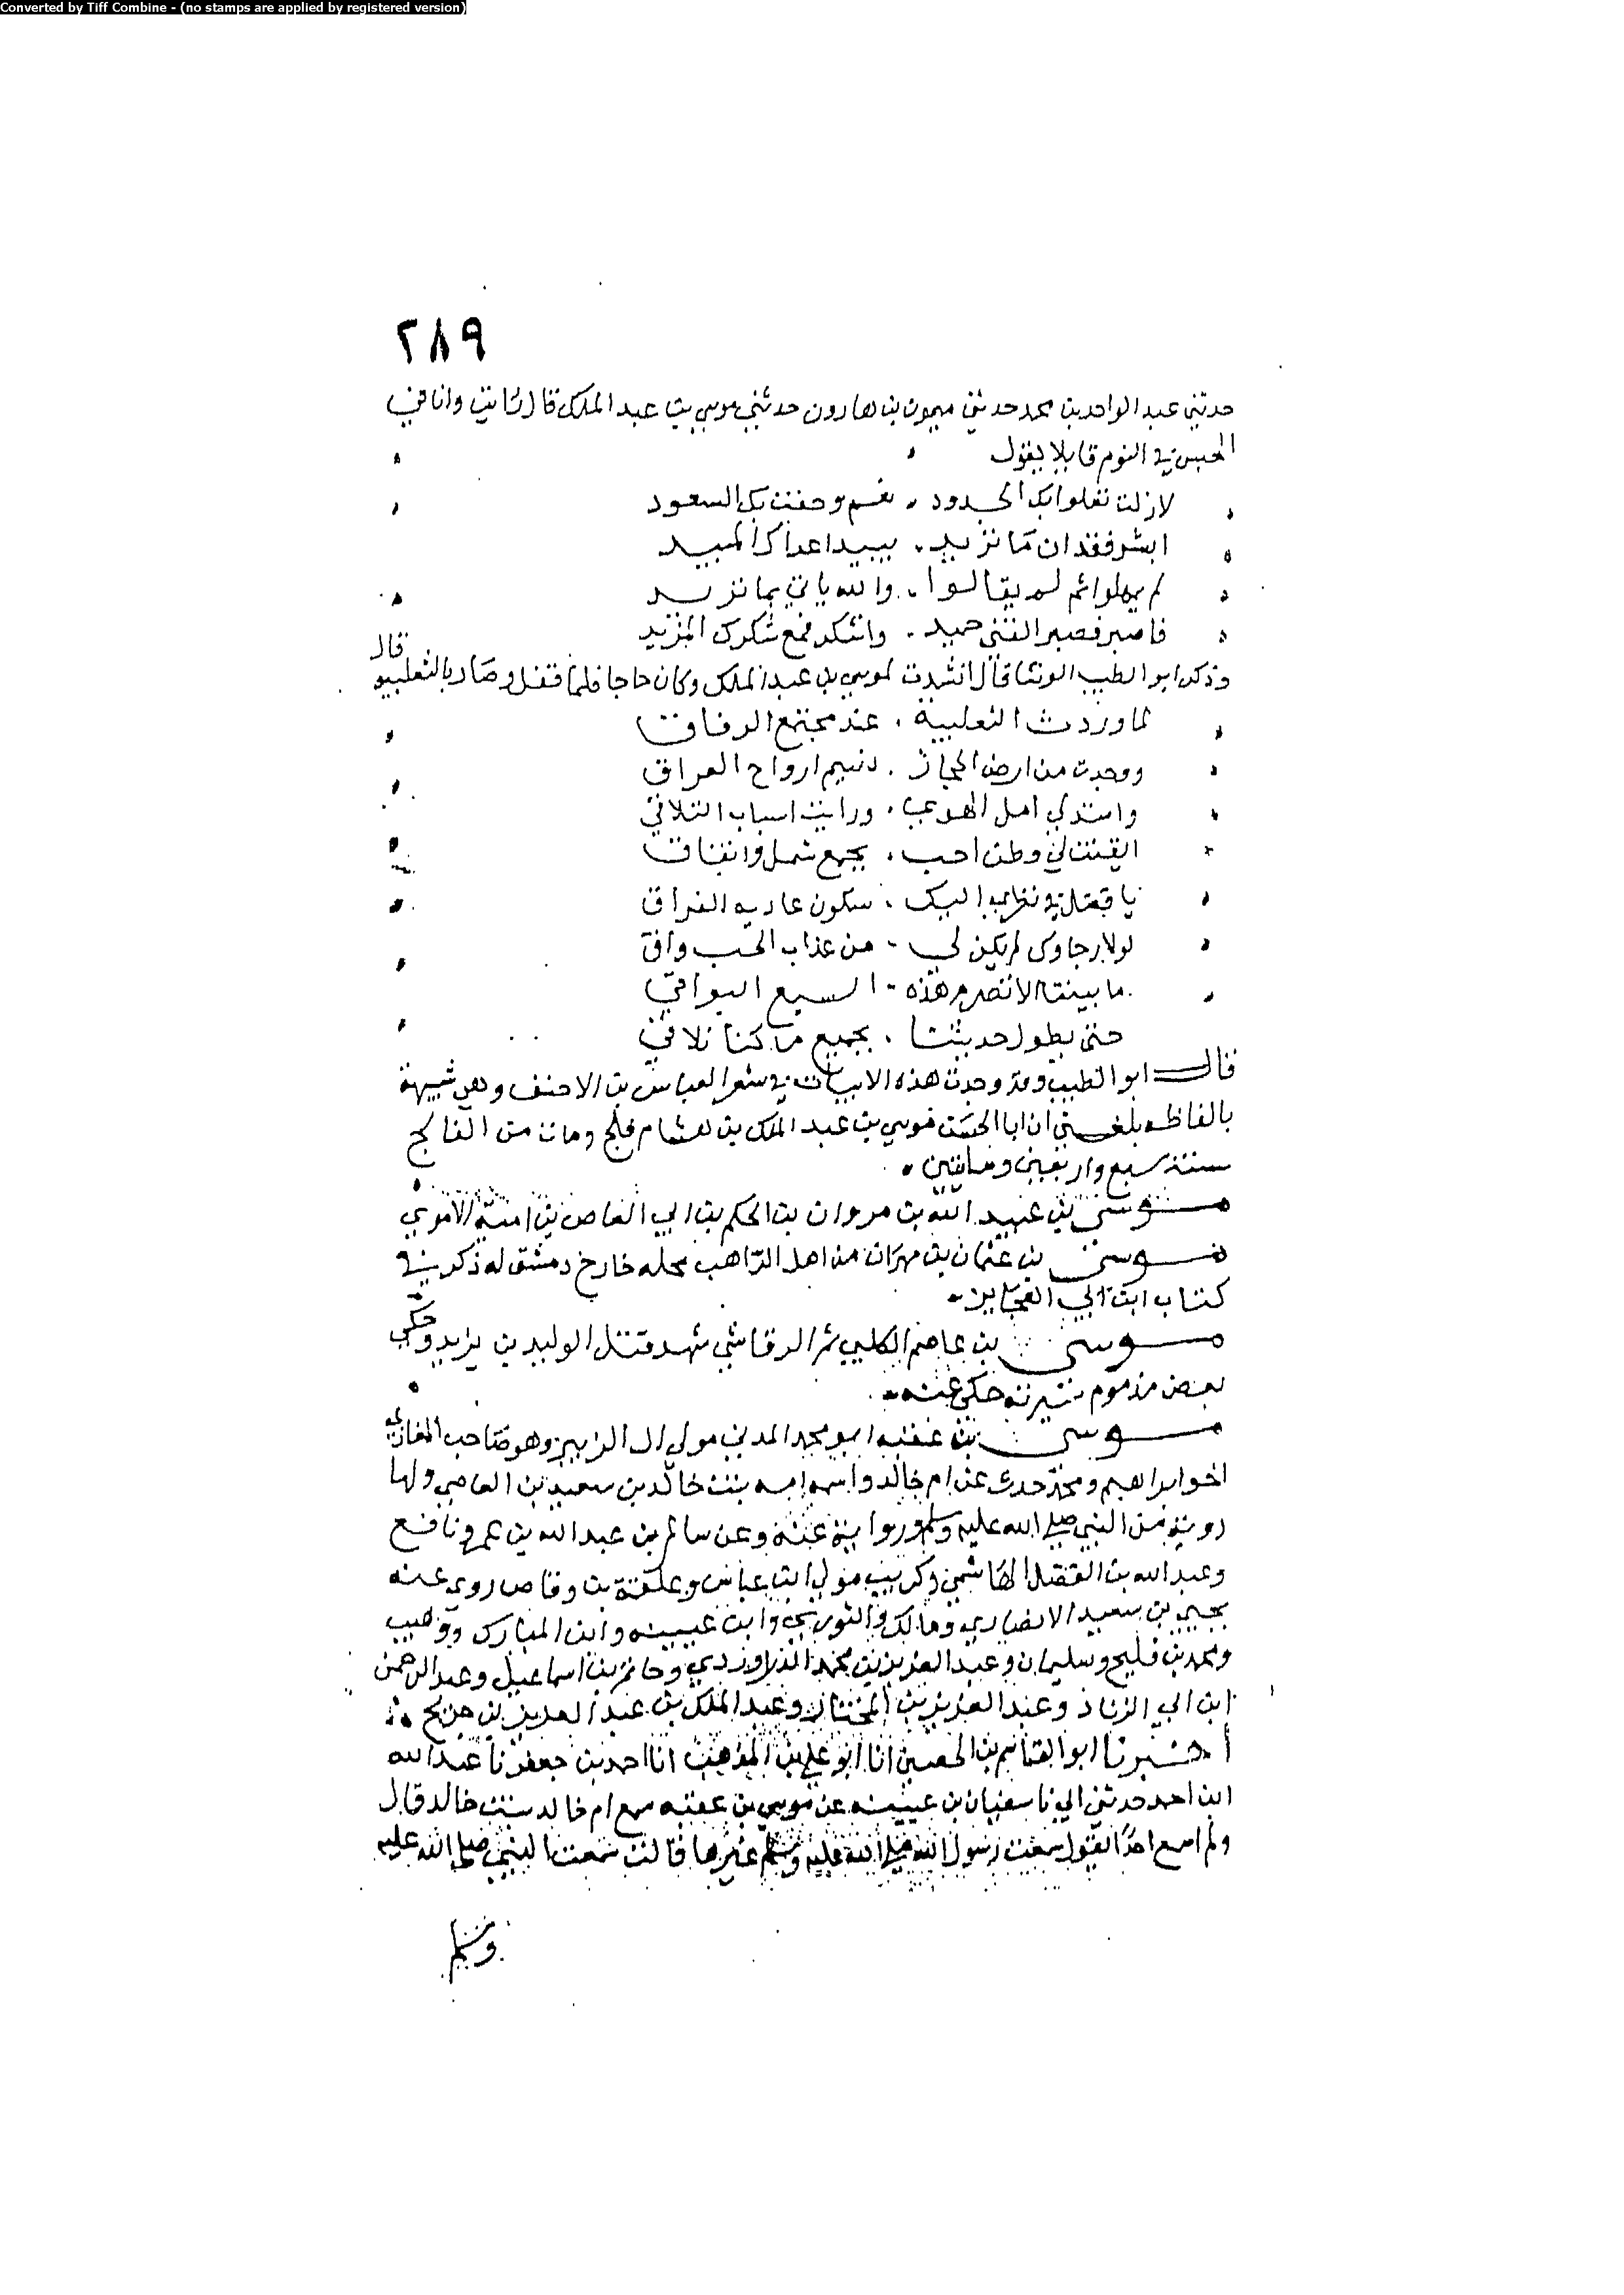 Converted by Tiff Combine - (no stamps are applied by registered version)
٢٨٩
حدثني عبد الواحد بن محمد حدثني ميمون بن هارون حدثني موسي بن عبد الملك قال رايت وانا في
الحبس في النوم قايلا يقول
لازلت تعلوا بك الجدود . نعم وحفت بك السعود
ابشر فقد ان ما تريد . يبيد اعداك المبيد
لم يمهلوا ثم لم يقالوا . والله ياتي بما تريد
فاصبر فصبر الفتى حميد . واشكر فمع شكرك المزيد
وذكر ابو الطيب الوشا قال انشدت لموسي بن عبد الملك وكان حاجا فلما قفل وصار بالثعلبيه قال
لما وردت الثعلبية . عند مجتمع الرفاق
ووجدت من ارض الحجاز . نسيم ارواح العراق
ورايت اسباب التلاقي
ايقنت لي ولمن احب . بجمع شمل واتفاق
لولا رجاوك لم يكن لي . من عذاب الحب واق
ما بيننا الا تصرم هذه . السبع البواقي
حتى يطول حديثنا . بجميع ما كنا نلاقي
قال ابو الطيب وقد وجدت هذه الابيات في شعر العباس بن الاحنف وهي شبيهة
بالفاظه بلغني ان ابا الحسن موسي بن عبد الملك بن هشام فلج ومات من الفالج
سنة سبع واربعين ومايتين .
موسى بن عبيد الله بن مروان بن الحكم بن ابي العاص بن امية الاموي
موسى بن عثمان بن مهران من اهل الراهب محله خارج دمشق له ذكر في
كتاب ابن ابي العجايز .
موسى بن عاصم الكلبي ثم الرقاشي شهد قتل الوليد بن يزيد وحكي
بعض مذموم سيرته حكى عنه .
موسى بن عقبه ابو محمد المديني مولى ال الزبير وهو صاحب المغازي
اخو ابراهيم ومحمد حدث عن ام خالد واسمها امه بنت خالد بن سعيد بن العاصي ولها
روية من النبي صلى الله عليه وسلم ورواية عنه وعن سالم بن عبد الله بن عمر ونافع
وعبد الله بن الفضل الهاشمي وكريب مولى ابن عباس وعلقمة بن وقاص روى عنه
يحيى بن سعيد الانصاري ومالك والثوري وابن عيينه وابن المبارك ووهيب
ومحمد بن فليح وسليمان وعبد العزيز بن محمد الدراوردي وحاتم بن اسماعيل وعبد الرحمن
ابن ابي الزناد وعبد العزيز بن المختار وعبد الملك بن عبد العزيز بن جريج
أخبرنا ابو القاسم بن الحصين انا ابو علي بن المذهب انا احمد بن جعفر نا عبد الله
ابن احمد حدثني ابي نا سفيان بن عيينه عن موسي بن عقبه سمع ام خالد بنت خالد قال
ولم اسمع احدا يقول سمعت رسول الله صلى الله عليه وسلم غيرها قالت سمعت النبي صلى الله عليه
وسلم